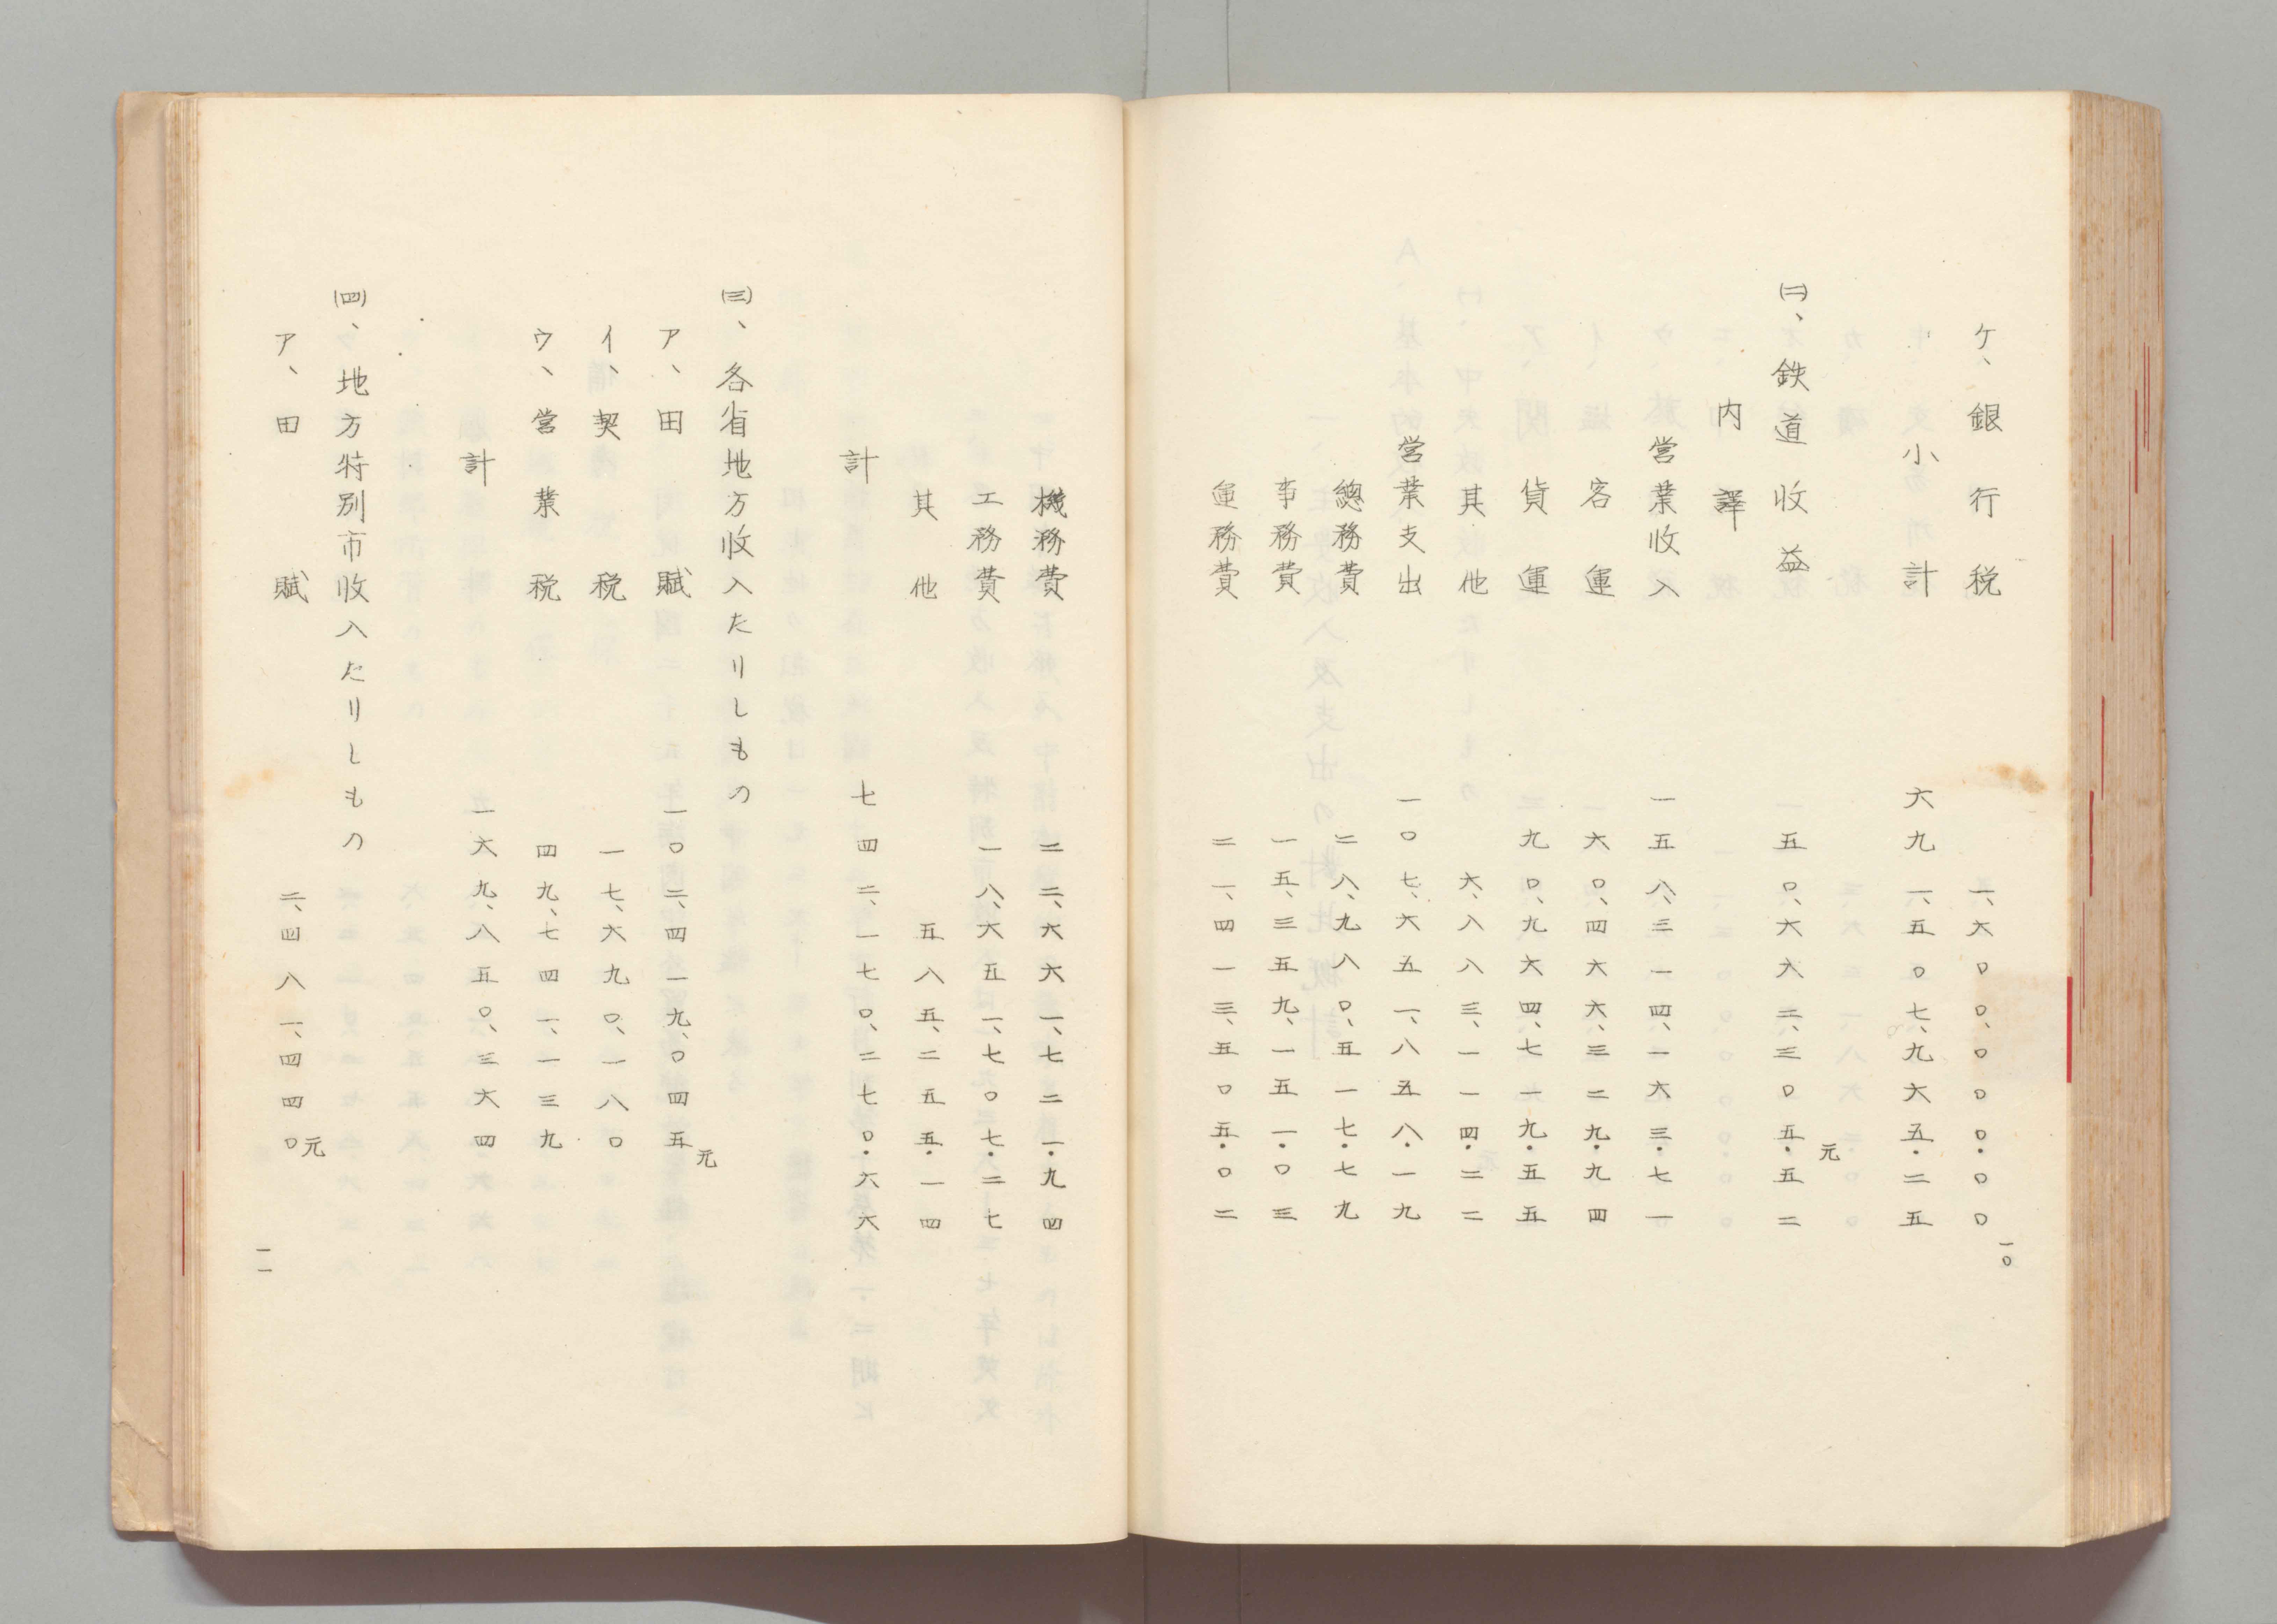 ケ、銀行税 一、六〇〇、〇〇〇・〇〇
小計 六九一、五〇七、九六五・二五
元
(二)、鉄道收益 五〇、六六二、三〇五・五二
内譯
営業收入 一五八、三一四、一六三・七一
客運 六〇、四六六、三二九・九四
貨運 九〇、九六四、七一九・五五
其他 六、八八三、一一四・二二
営業支出 一〇七、六五一、八五八・一九
總務費 二八、九八〇、五一七・七九
事務費 一五、三五九、一五一・〇三
運務費 二一、四一三、五〇五・〇二
一〇
機務費 二二、六六一、七二一・九四
工務費 一八、六五一、七〇七・二七
其他 五八五、二五五・一四
計 七四二、一七〇、二七〇・六六
(三)、各省地方收入たりしもの
元
ア、田賦 一〇二、四一九、〇四五
イ、契税 一七、六九〇、一八〇
ウ、営業税 四九、七四一、一三九
計 一六九、八五〇、三六四
(四)、地方特別市收入たりしもの
元
ア、田賦 二、四八一、四四〇
一一